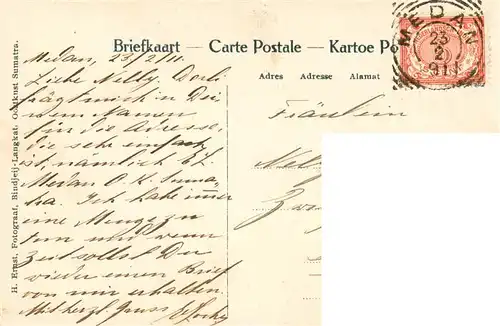 Briefkaart — Carte Postale — Kartoe Po
Adres Adresse Alamat
MEDAN
23
2
911
H. Ernst, Fotograaf, Bindjeij-Langkat. Oostkust Sumatra.
Medan, 23/2/11.
Liebe Nelly. Dorli
frägt mich in Dei
nem Namen
für die Adresse,
die sehr einfach
ist, nämlich
Medan O. K. Suma-
tra. Ich habe immer
eine Menge zu
tun und wenn
Zeit sollst Du
wieder einen Brief
von mir erhalten.
Mit herzl. Gruss
Fräulein
Nell
Zw